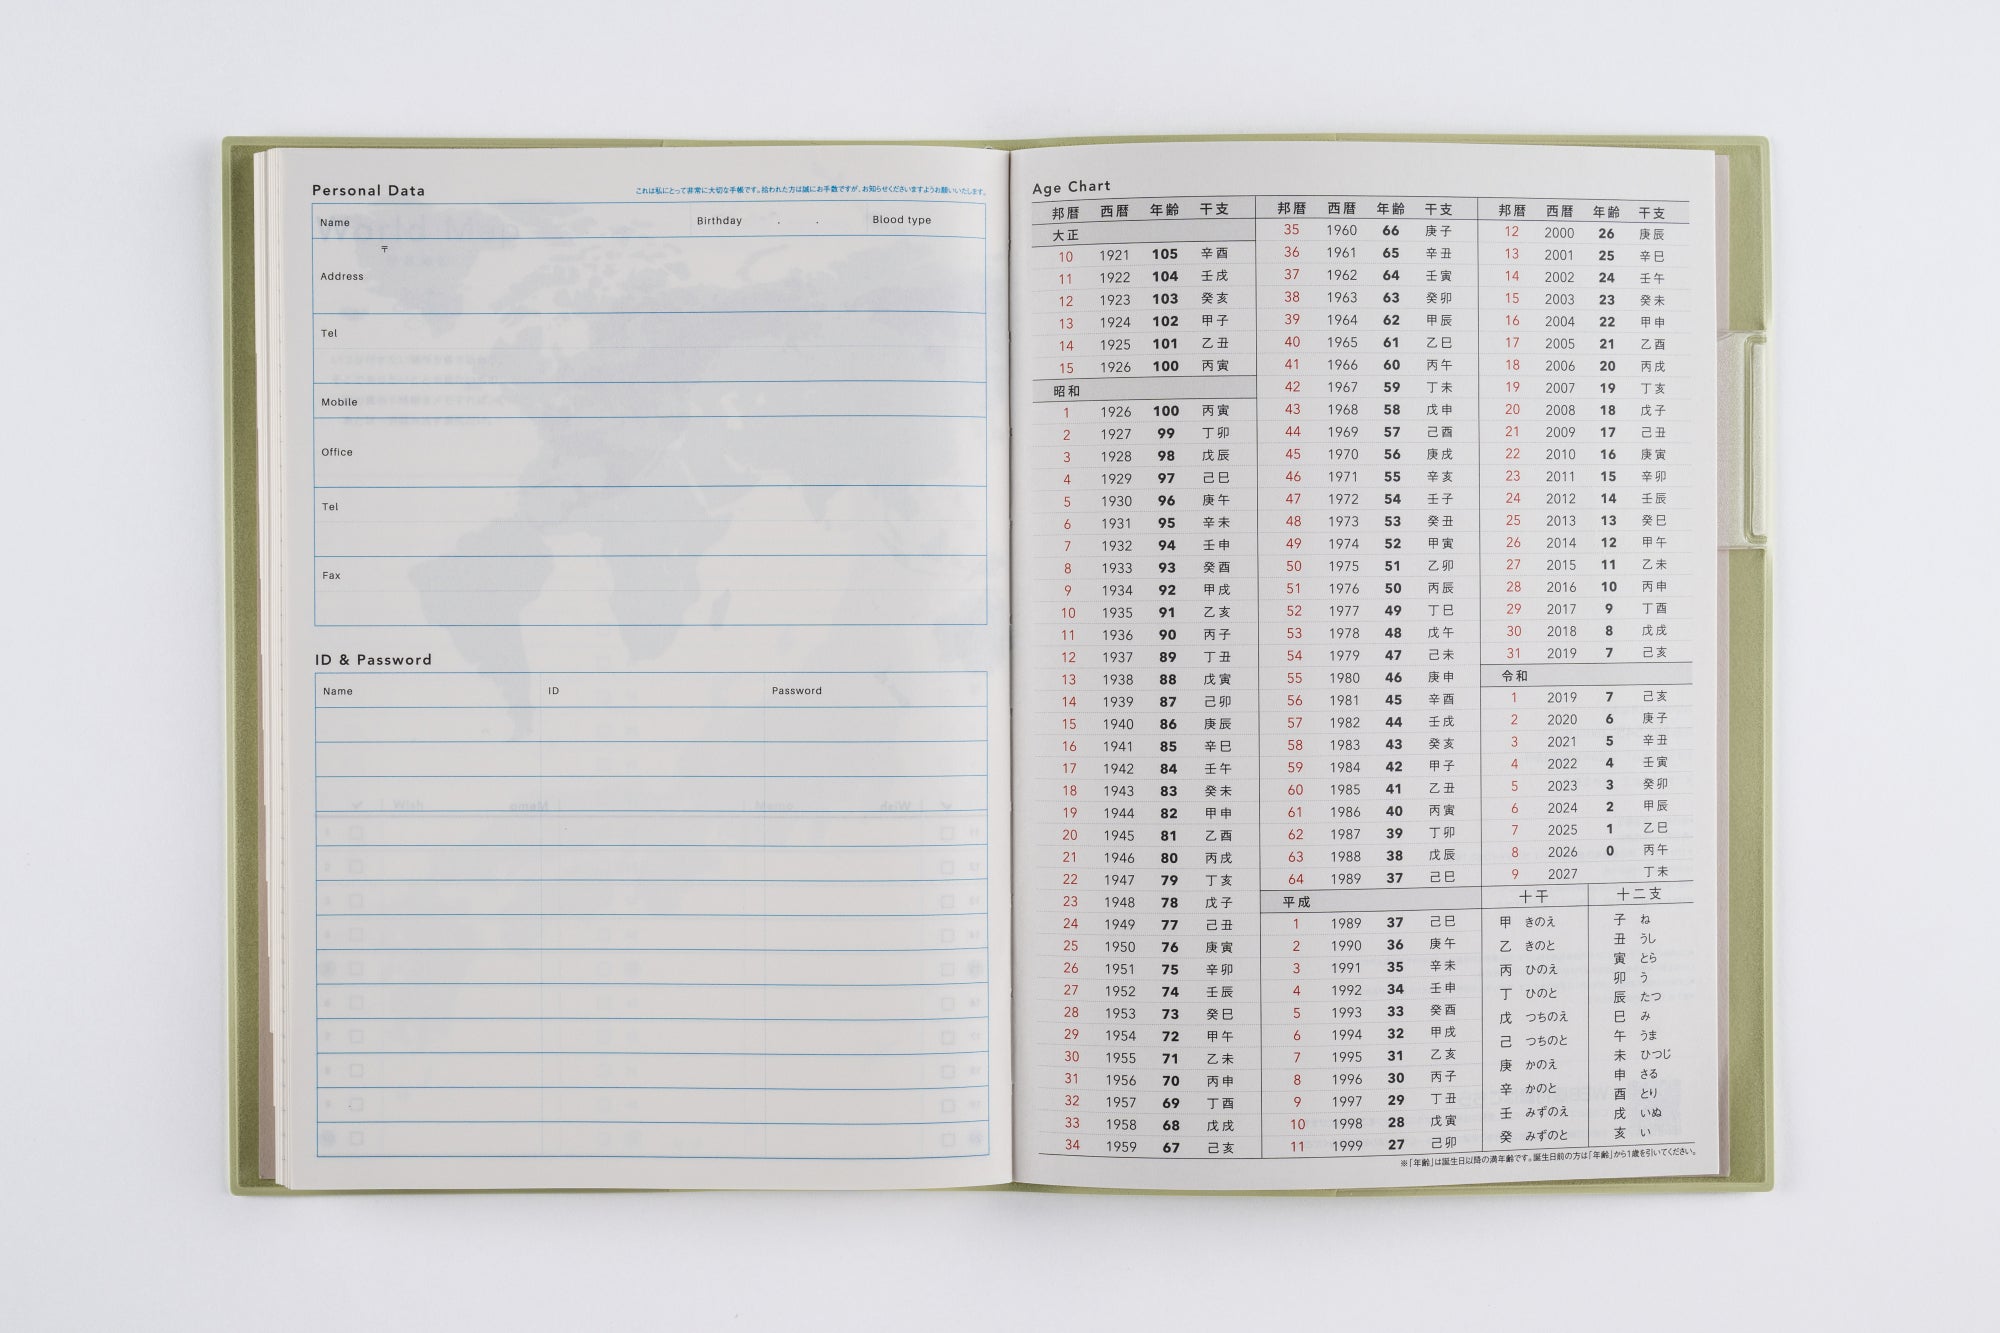 Personal Data
これは私にとって非常に大切な手帳です。拾われた方は誠にお手数ですが、お知らせくださいますようお願いいたします。
Name
Birthday . .
Blood type
〒
Address
Tel
Mobile
Office
Tel
Fax
ID & Password
Name ID Password
Age Chart
邦暦 西暦 年齢 干支
大正
10 1921 105 辛酉
11 1922 104 壬戌
12 1923 103 癸亥
13 1924 102 甲子
14 1925 101 乙丑
15 1926 100 丙寅
昭和
1 1926 100 丙寅
2 1927 99 丁卯
3 1928 98 戊辰
4 1929 97 己巳
5 1930 96 庚午
6 1931 95 辛未
7 1932 94 壬申
8 1933 93 癸酉
9 1934 92 甲戌
10 1935 91 乙亥
11 1936 90 丙子
12 1937 89 丁丑
13 1938 88 戊寅
14 1939 87 己卯
15 1940 86 庚辰
16 1941 85 辛巳
17 1942 84 壬午
18 1943 83 癸未
19 1944 82 甲申
20 1945 81 乙酉
21 1946 80 丙戌
22 1947 79 丁亥
23 1948 78 戊子
24 1949 77 己丑
25 1950 76 庚寅
26 1951 75 辛卯
27 1952 74 壬辰
28 1953 73 癸巳
29 1954 72 甲午
30 1955 71 乙未
31 1956 70 丙申
32 1957 69 丁酉
33 1958 68 戊戌
34 1959 67 己亥
邦暦 西暦 年齢 干支
35 1960 66 庚子
36 1961 65 辛丑
37 1962 64 壬寅
38 1963 63 癸卯
39 1964 62 甲辰
40 1965 61 乙巳
41 1966 60 丙午
42 1967 59 丁未
43 1968 58 戊申
44 1969 57 己酉
45 1970 56 庚戌
46 1971 55 辛亥
47 1972 54 壬子
48 1973 53 癸丑
49 1974 52 甲寅
50 1975 51 乙卯
51 1976 50 丙辰
52 1977 49 丁巳
53 1978 48 戊午
54 1979 47 己未
55 1980 46 庚申
56 1981 45 辛酉
57 1982 44 壬戌
58 1983 43 癸亥
59 1984 42 甲子
60 1985 41 乙丑
61 1986 40 丙寅
62 1987 39 丁卯
63 1988 38 戊辰
64 1989 37 己巳
平成
1 1989 37 己巳
2 1990 36 庚午
3 1991 35 辛未
4 1992 34 壬申
5 1993 33 癸酉
6 1994 32 甲戌
7 1995 31 乙亥
8 1996 30 丙子
9 1997 29 丁丑
10 1998 28 戊寅
11 1999 27 己卯
邦暦 西暦 年齢 干支
12 2000 26 庚辰
13 2001 25 辛巳
14 2002 24 壬午
15 2003 23 癸未
16 2004 22 甲申
17 2005 21 乙酉
18 2006 20 丙戌
19 2007 19 丁亥
20 2008 18 戊子
21 2009 17 己丑
22 2010 16 庚寅
23 2011 15 辛卯
24 2012 14 壬辰
25 2013 13 癸巳
26 2014 12 甲午
27 2015 11 乙未
28 2016 10 丙申
29 2017 9 丁酉
30 2018 8 戊戌
31 2019 7 己亥
令和
1 2019 7 己亥
2 2020 6 庚子
3 2021 5 辛丑
4 2022 4 壬寅
5 2023 3 癸卯
6 2024 2 甲辰
7 2025 1 乙巳
8 2026 0 丙午
9 2027 丁未
十干
甲 きのえ
乙 きのと
丙 ひのえ
丁 ひのと
戊 つちのえ
己 つちのと
庚 かのえ
辛 かのと
壬 みずのえ
癸 みずのと
十二支
子 ね
丑 うし
寅 とら
卯 う
辰 たつ
巳 み
午 うま
未 ひつじ
申 さる
酉 とり
戌 いぬ
亥 い
※「年齢」は誕生日以降の満年齢です。誕生日前の方は「年齢」から1歳を引いてください。